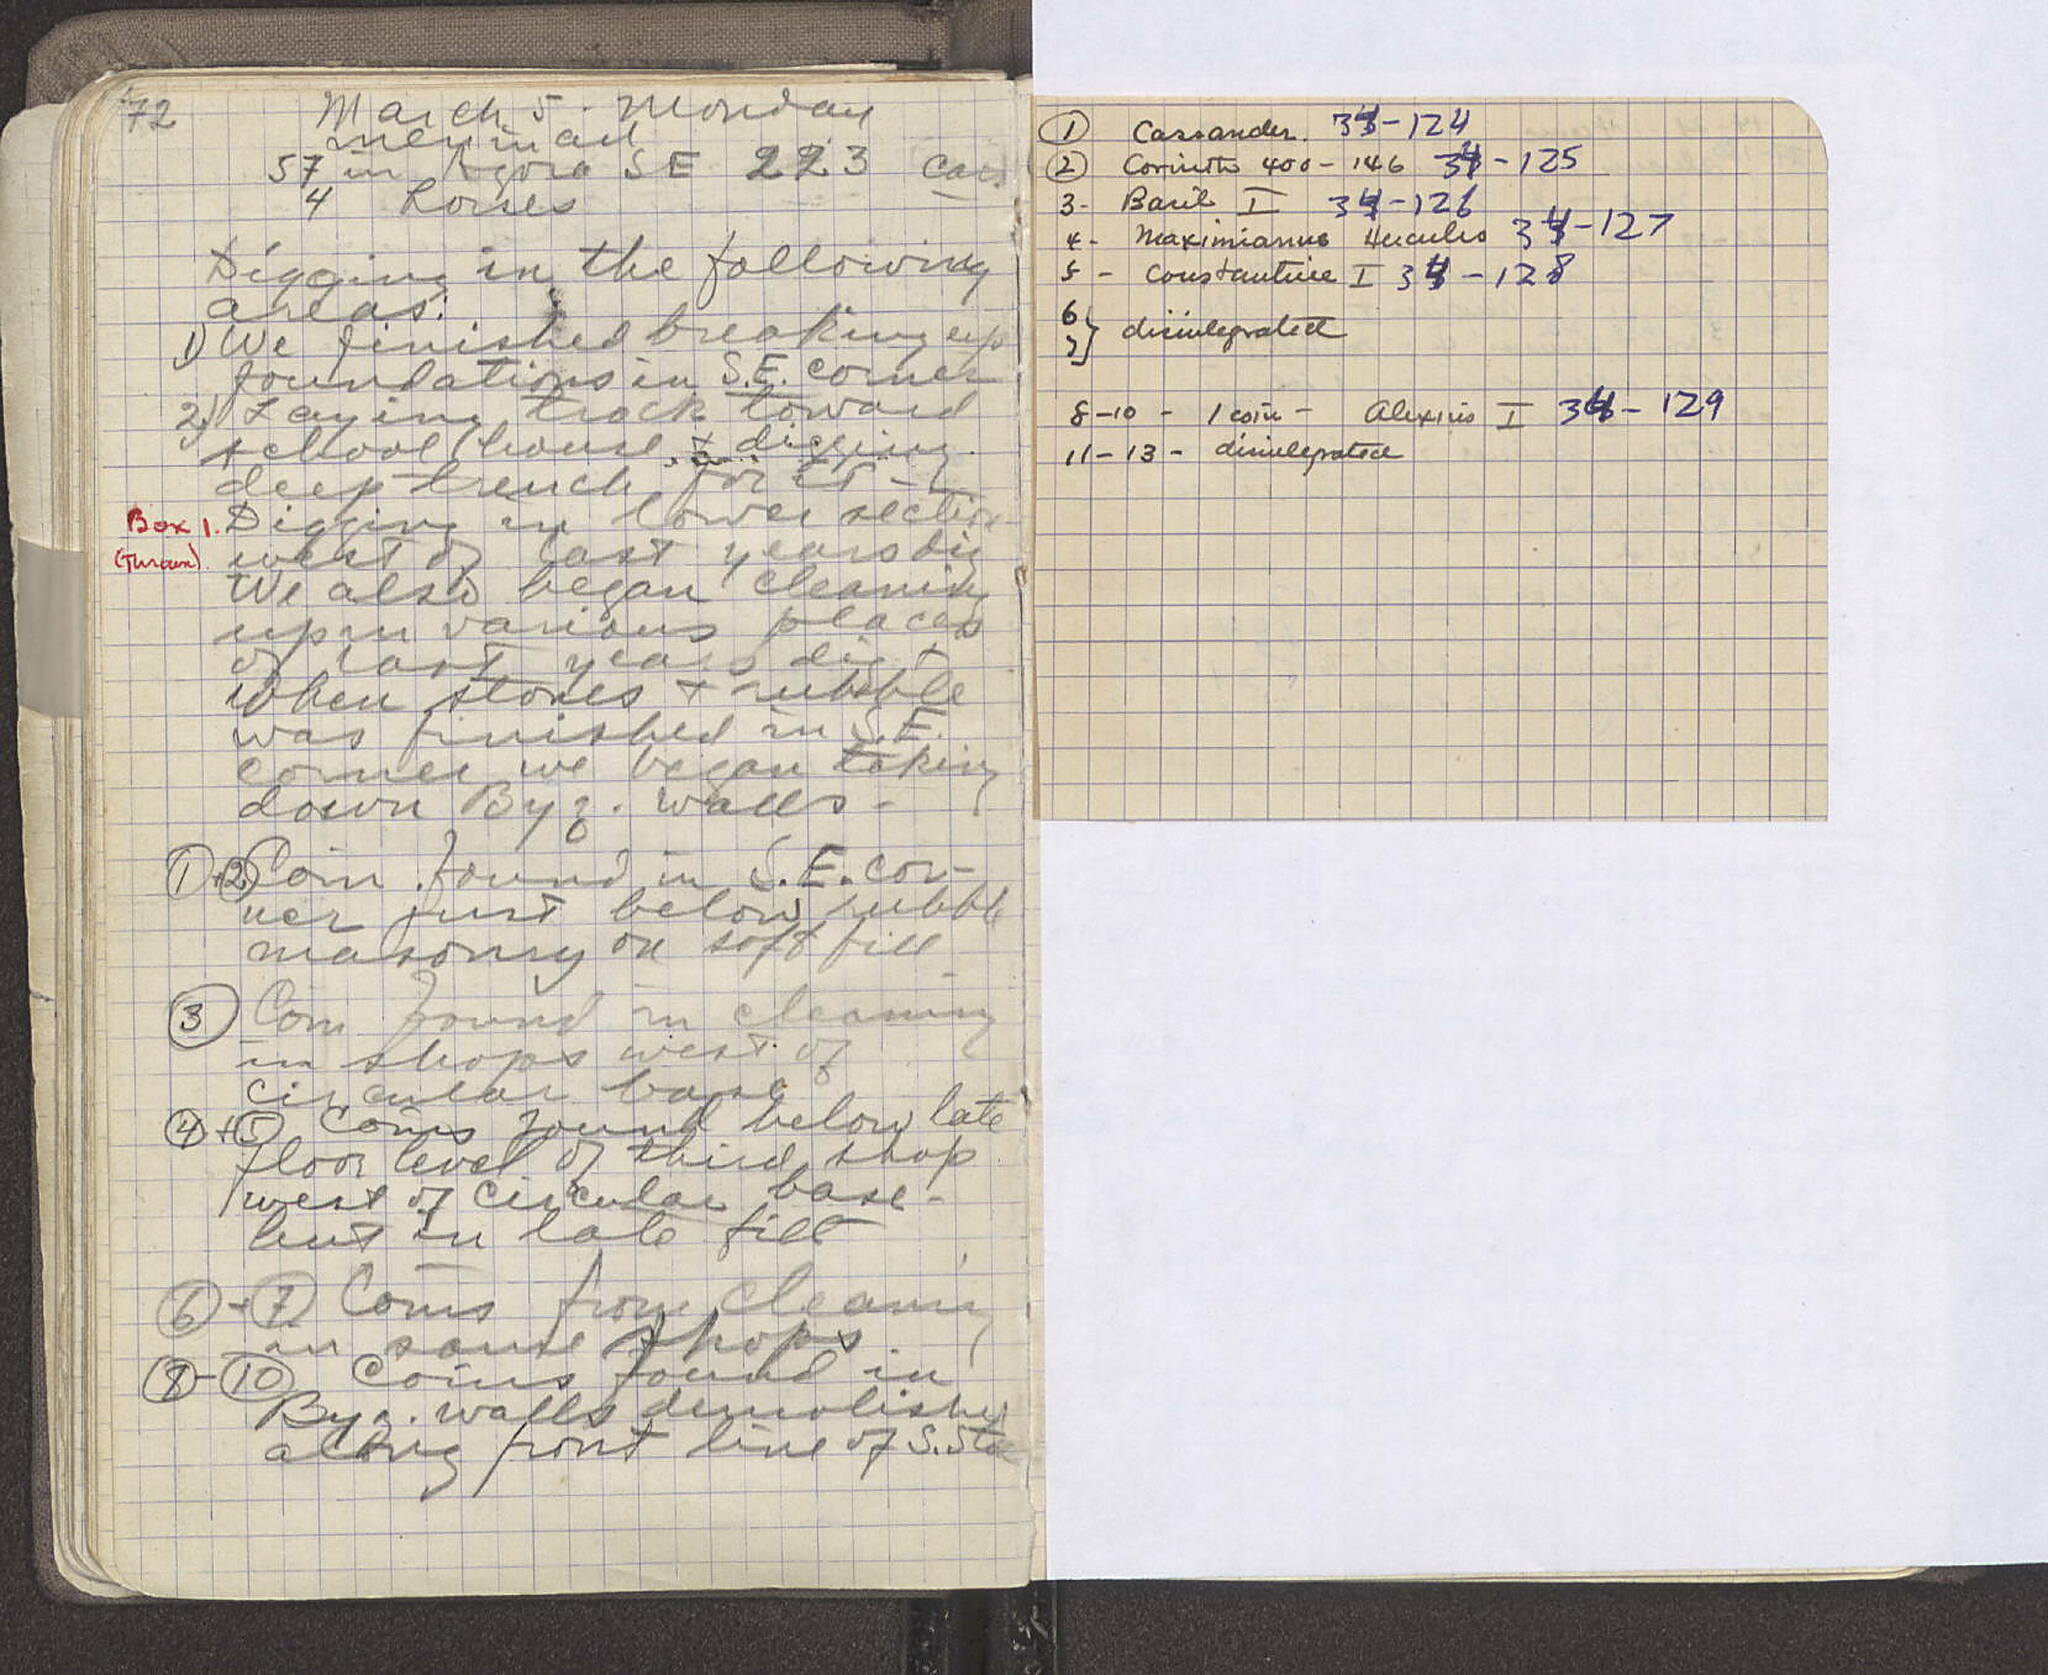 72
March 5 - Monday
men in all
57 in Agora SE 223 cars
4 horses
Digging in the following
areas:
1) We finished breaking up
foundations in S.E. corner
2) Laying track toward
school house + digging
deep trench for it -
Box 1. Digging in lower section
(Thrown). west of last years dig
We also began cleaning
up in various places
of last years dig +
when stones + rubble
was finished in S.E.
corner we began taking
down Byz. walls -
1+2 Coin found in S.E. cor-
ner just below rubble
masonry on soft fill
3 Coin found in cleaning
in shops west of
circular base
4+5 Coins found below late
floor level of third shop
west of circular base -
but in late fill
6-7 Coins from cleaning
in same shops
8-10 Coins found in
Byz. walls demolished
along front line of S. Stoa
1 Cassander. 34-124
2 Corinth 400-146 34-125
3- Basil I 34-126
4- Maximianus Hercules 34-127
5- Constantine I 34-128
6
7} disintegrated
8-10 - 1 coin - Alexius I 34-129
11-13 - disintegrated